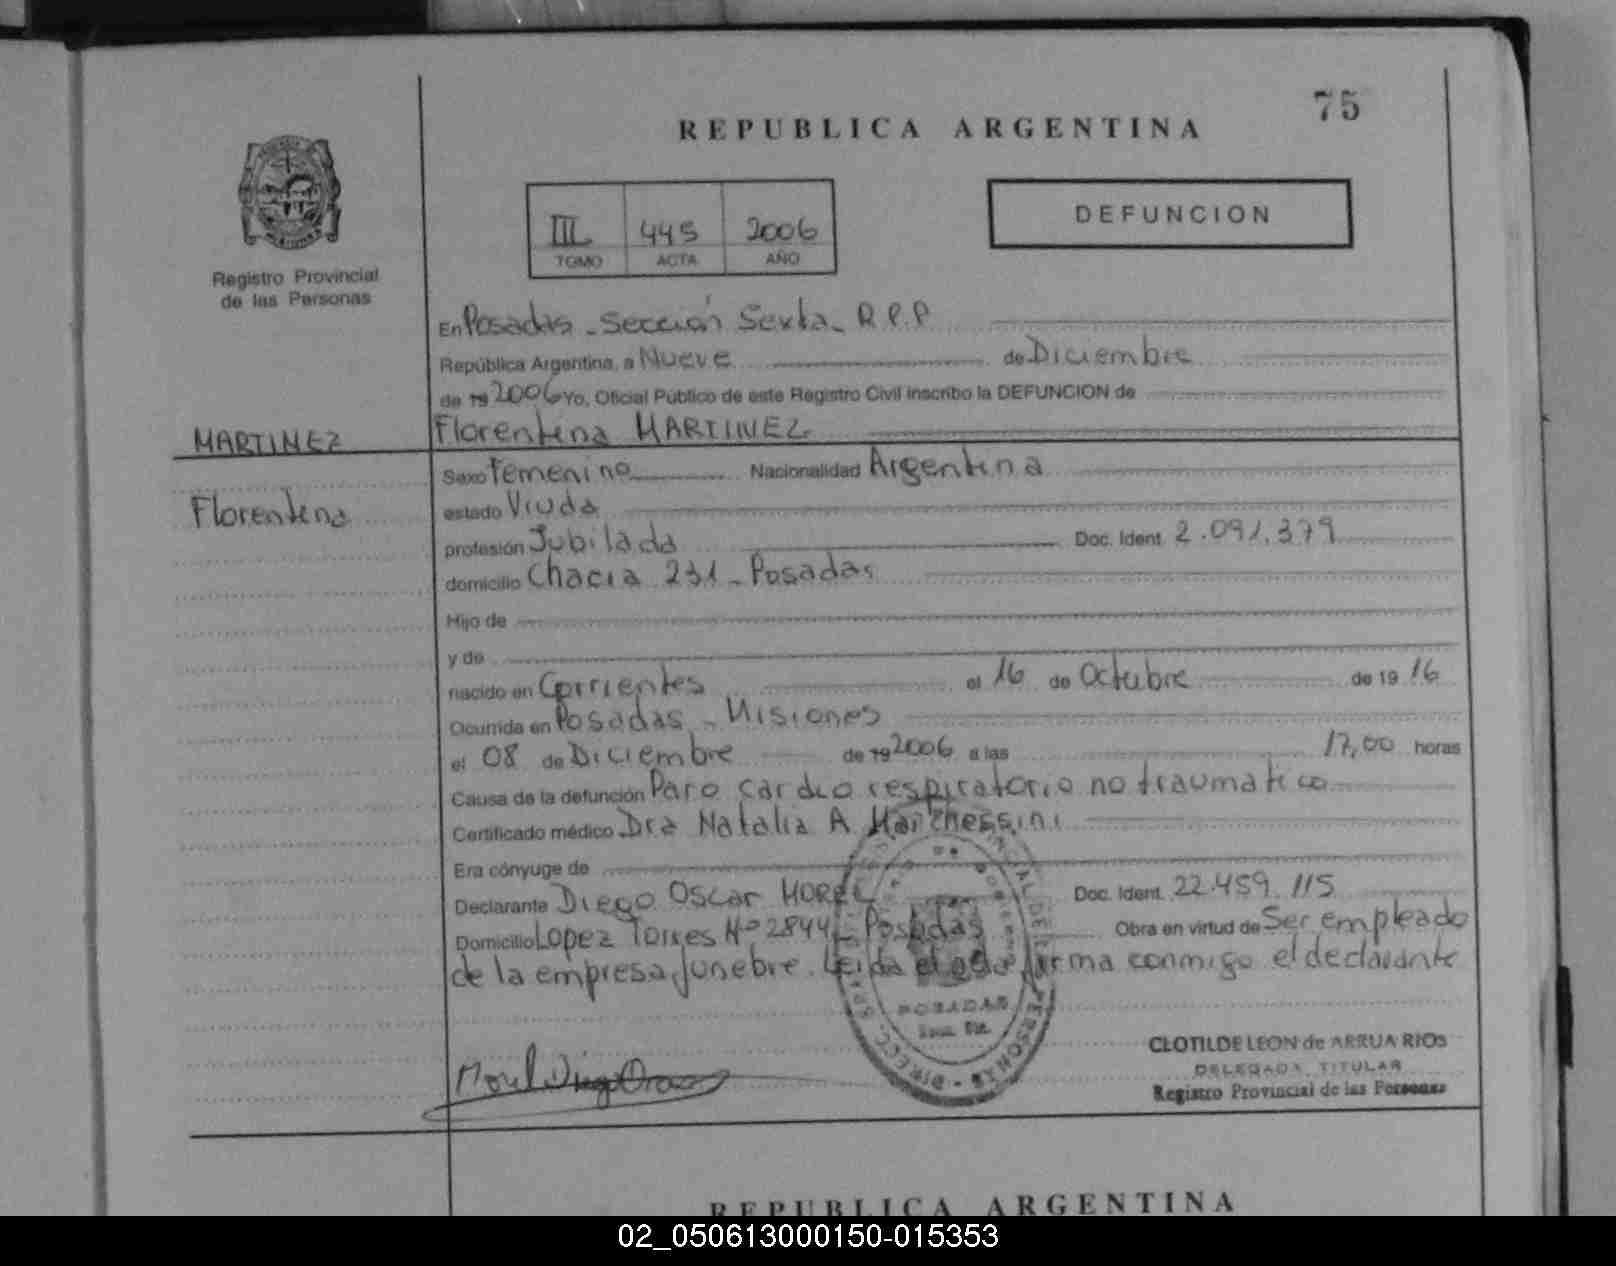 75
REPUBLICA ARGENTINA
III 445 2006
TOMO ACTA AÑO
DEFUNCION
Registro Provincial
de las Personas
En Posadas - Sección Sexta - R.P.P
República Argentina, a Nueve de Diciembre
de 19 2006 Yo, Oficial Público de este Registro Civil inscribo la DEFUNCION de
MARTINEZ
Florentina MARTINEZ
Sexo Femenino Nacionalidad Argentina
Florentina
estado Viuda
profesión Jubilada Doc. Ident. 2.091.379
domicilio Chacra 231 - Posadas
Hijo de
y de
nacido en Corrientes el 16 de Octubre de 19 16
Ocurrida en Posadas - Misiones
el 08 de Diciembre de 19 2006 a las 17,00 horas
Causa de la defunción Paro cardio respiratorio no traumatico
Certificado médico Dra Natalia A Marchessini
Era cónyuge de
Declarante Diego Oscar MOREL Doc. Ident. 22.459.115
Domicilio Lopez Torres Nº 2844 - Posadas Obra en virtud de Ser empleado
de la empresa funebre. Leída el acta firma conmigo el declarante
POSADAS
PERSONAS - DIRECC.
Morel Diego Oscar
CLOTILDE LEON de ARRUA RIOS
DELEGADA TITULAR
Registro Provincial de las Personas
REPUBLICA ARGENTINA
02_050613000150-015353